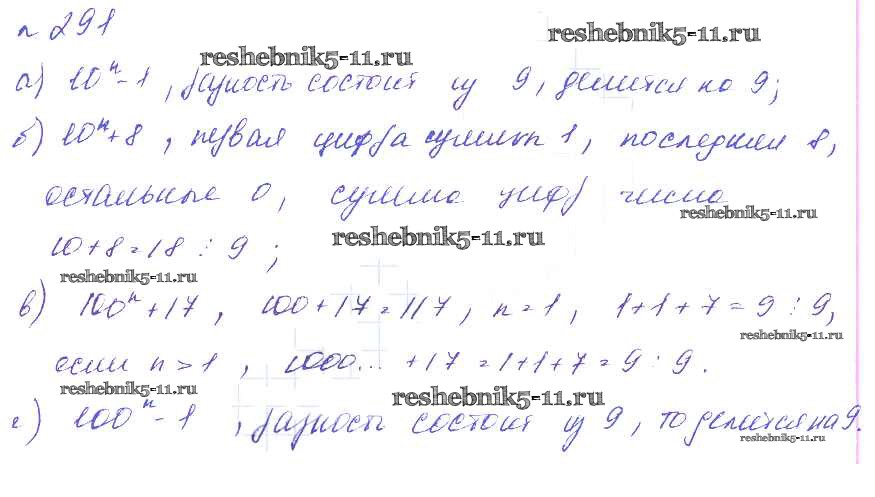 n 291
reshebnik5-11.ru
reshebnik5-11.ru
а) 10ⁿ-1, разность состоит из 9, делится на 9;
б) 10ⁿ+8, первая цифра суммы 1, последняя 8,
остальные 0, сумма цифр числа
reshebnik5-11.ru
10+8=18 ⋮ 9;
reshebnik5-11.ru
reshebnik5-11.ru
в) 100ⁿ+17, 100+17=117, n=1, 1+1+7=9 ⋮ 9,
reshebnik5-11.ru
если n>1, 1000...+17=1+1+7=9 ⋮ 9.
reshebnik5-11.ru
reshebnik5-11.ru
г) 100ⁿ-1, разность состоит из 9, то делится на 9.
reshebnik5-11.ru